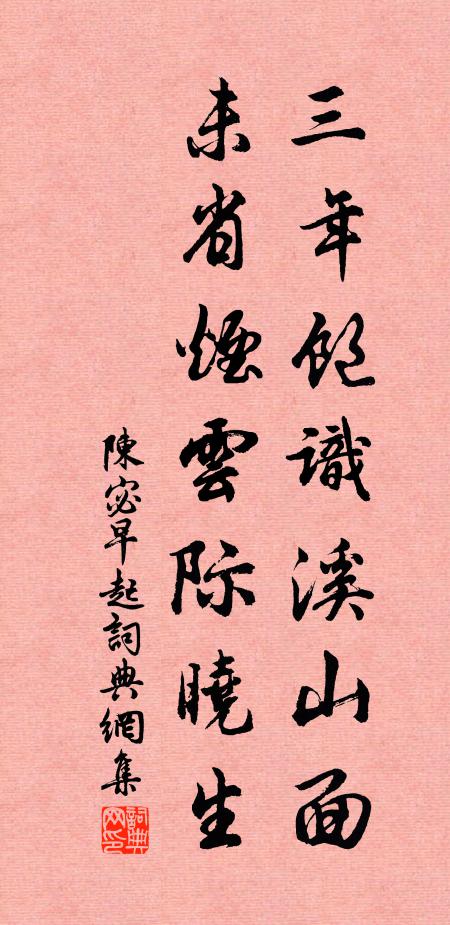 三年飽識溪山面
未省煙雲际曉生
陳宓早起詞典網集
詞典網印